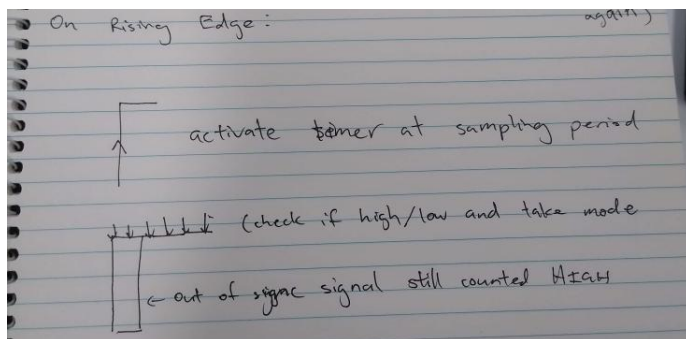 again)
On Rising Edge:
activate timer at sampling period
(check if high/low and take mode
← out of sync signal still counted HIGH